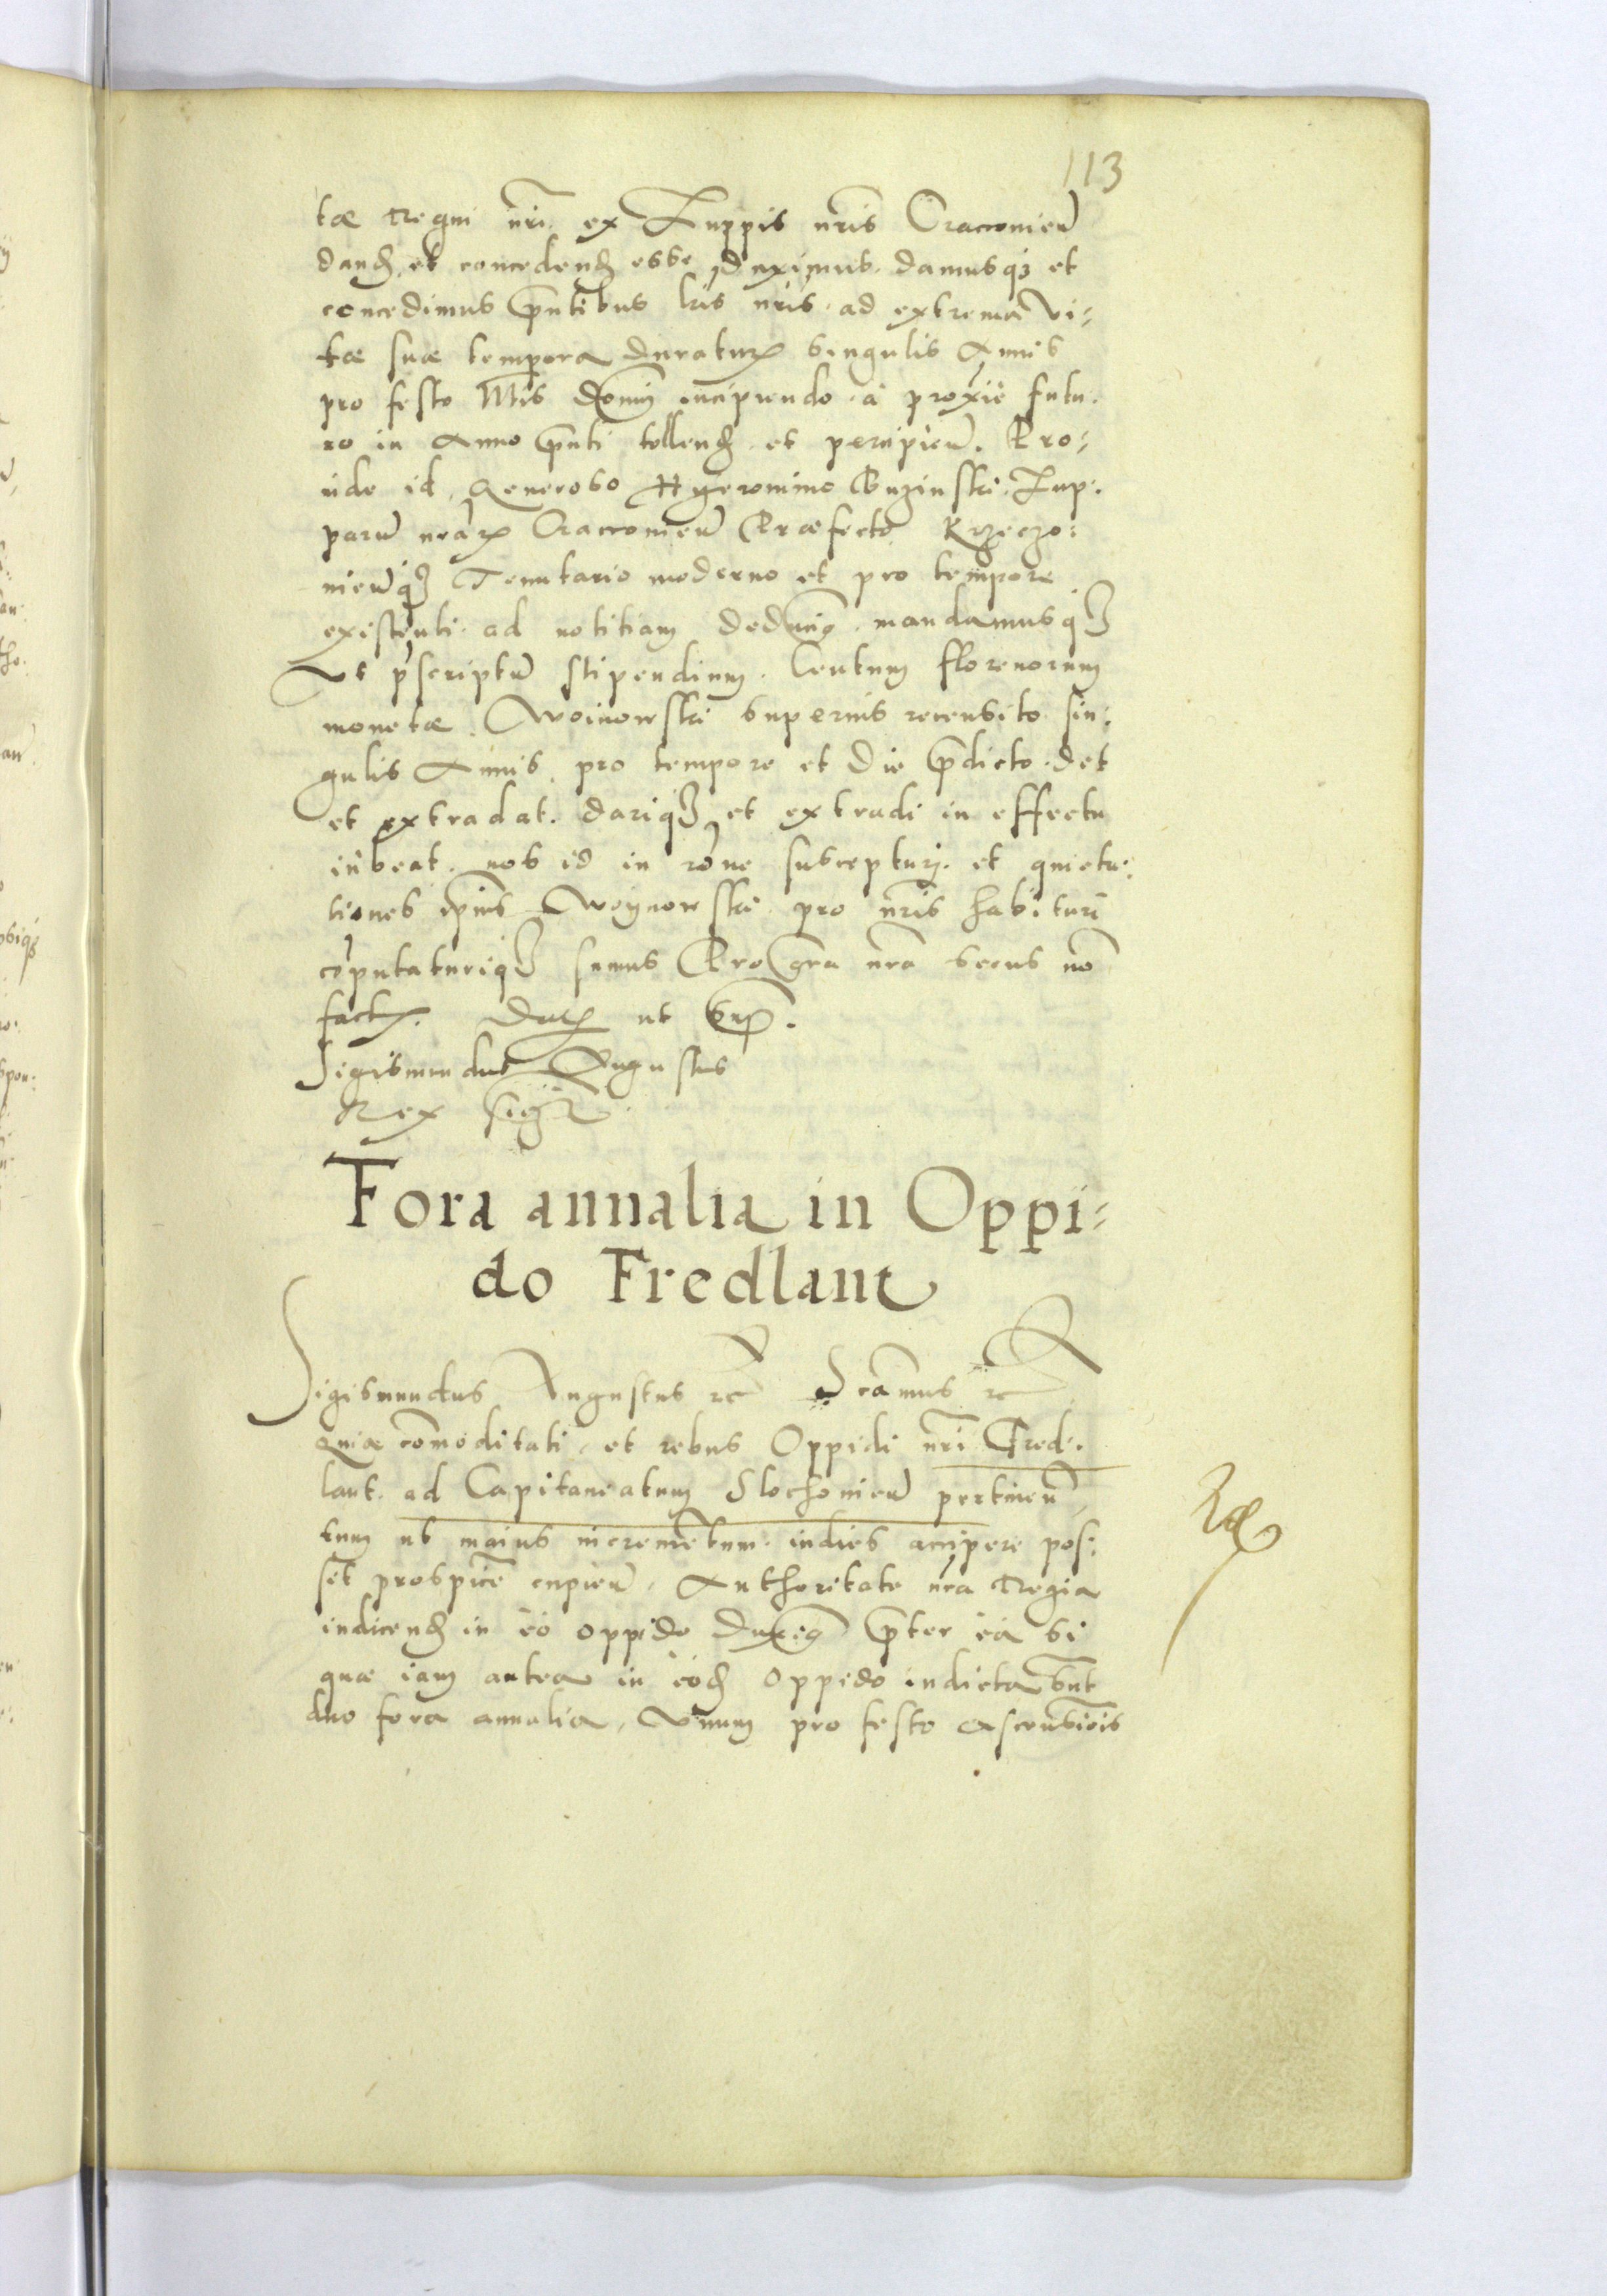 113
tæ Regni nri. ex Zuppis nris Cracovien̄
dand, et concedend esse duximus. damusq3 et
concedimus pntibus lris nris. ad extrema vi=
tæ suæ tempora duratur. singulis Annis
pro festo Nttis Domini incipiendo. a proxie futu.
ro in Anno pnti tollend. et percipien̄. Pro=
inde id, Generoso Hyeronimo Buzinski. Zup.
parū nrar Cracovien̄ Præfecto Krzeczo:
nien̄q3 Tenutario moderno et pro tempore
existenti. ad notitiam deducimus. mandamusq3
Vt pscriptū stipendium. Centum florenorum
monetæ. Woinowski superius recensito sin:
gulis Annis, pro tempore et Die pdicto. det
et extradat. dariq3 et extradi in effectu
iubeat. nos id in rone suscepturj. et quieta:
tiones ipius Woynowski pro nris habituri
coputaturiq3 sumus Pro gra nra secus no
factur. Dat ut sup.
Sigismundus Augustus
Rex sigt
Fora annalia in Oppi=
do Fredlant
Sigismundus Augustus rc Scamus rc
Quia comoditati, et rebus Oppidi nri Fred.
lant. ad Capitaneatum Slochonien̄ pertinen̄
tum ut maius incremetum. indies accipere pos:
set prospice cupien̄, Authoritate nra Regia
indicend in eo oppido duximus pter ea si
quæ iam antea in eod Oppido indicta sunt
duo fora annalia, Vnum pro festo Ascensiois